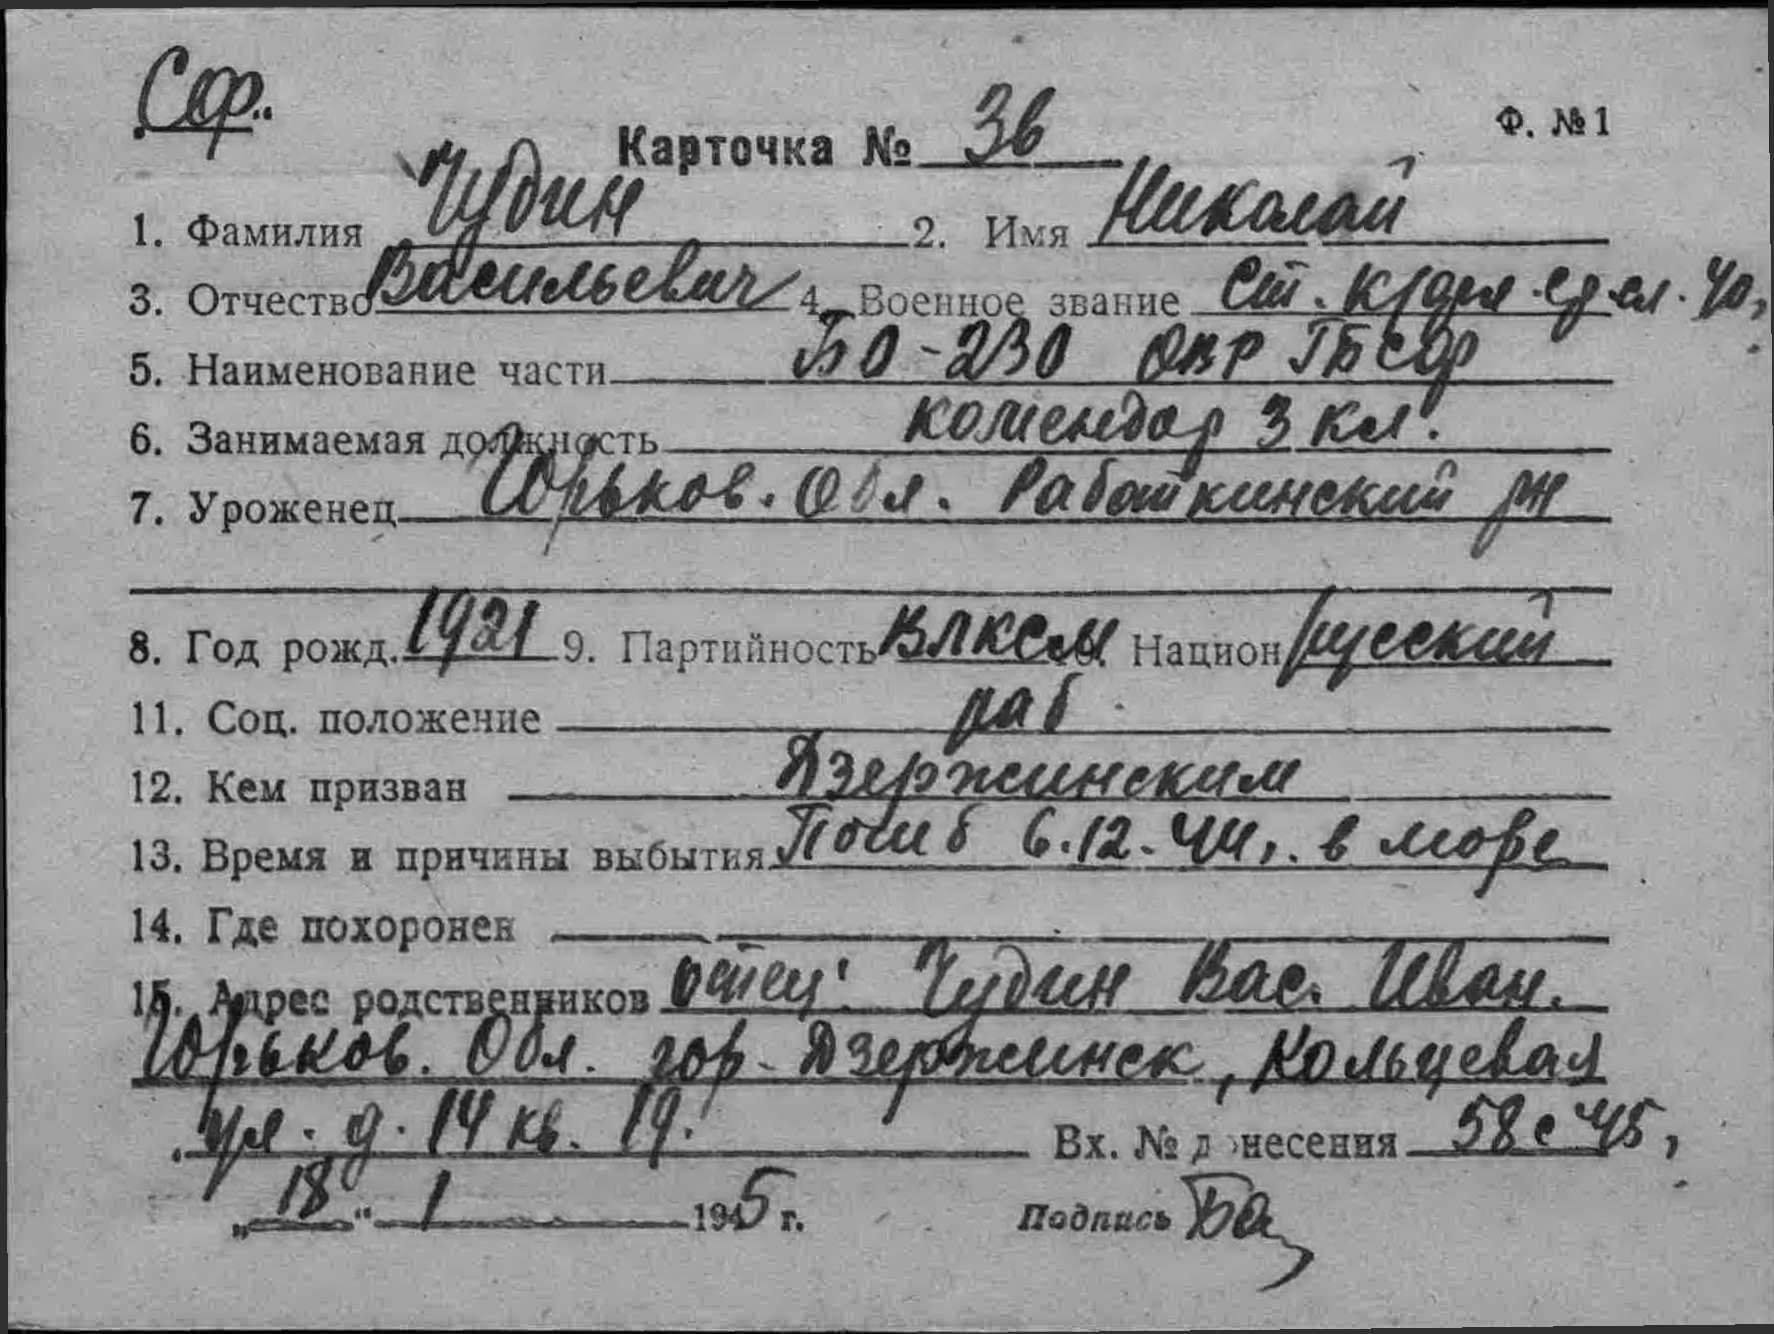 Сф.
Карточка № 36 Ф. № 1
1. Фамилия Чудин 2. Имя Николай
3. Отчество Васильевич 4. Военное звание Ст. к/фл. сл. 40,
5. Наименование части БО-230 ОВР ГБ СФ
6. Занимаемая должность комендор 3 кл.
7. Уроженец Горьков. Обл. Работкинский рн
8. Год рожд. 1921 9. Партийность ВЛКСМ Национ русский
11. Соц. положение раб
12. Кем призван Дзержинским
13. Время и причины выбытия Погиб 6.12.44, в море
14. Где похоронен
15. Адрес родственников отец: Чудин Вас. Иван.
Горьков. Обл. гор. Дзержинск, Кольцевая
ул. д. 14 кв. 19. Вх. № донесения 58с 45,
„18" 1 1945 г. Подпись